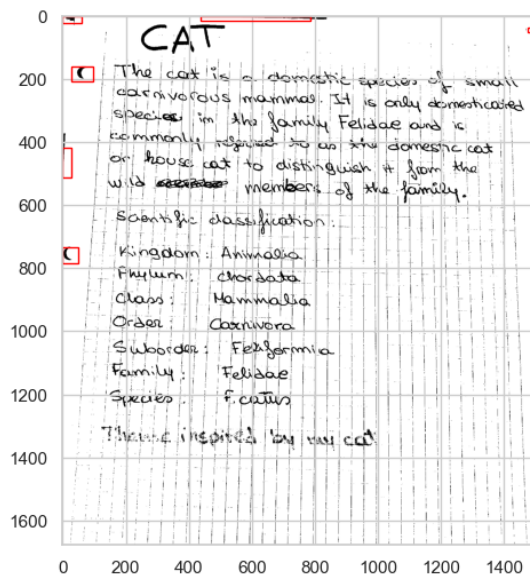 CAT
The cat is a domestic species of small
carnivorous mammal. It is only domesticated
species in the family Felidae and is
commonly referred to as the domestic cat
or house cat to distinguish it from the
wild members of the family.
Scientific classification:
Kingdom: Animalia
Phylum: Chordata
Class: Mammalia
Order Carnivora
Suborder: Feliformia
Family: Felidae
Species: F. catus
Theme inspired by my cat
0
200
400
600
800
1000
1200
1400
1600
0 200 400 600 800 1000 1200 1400